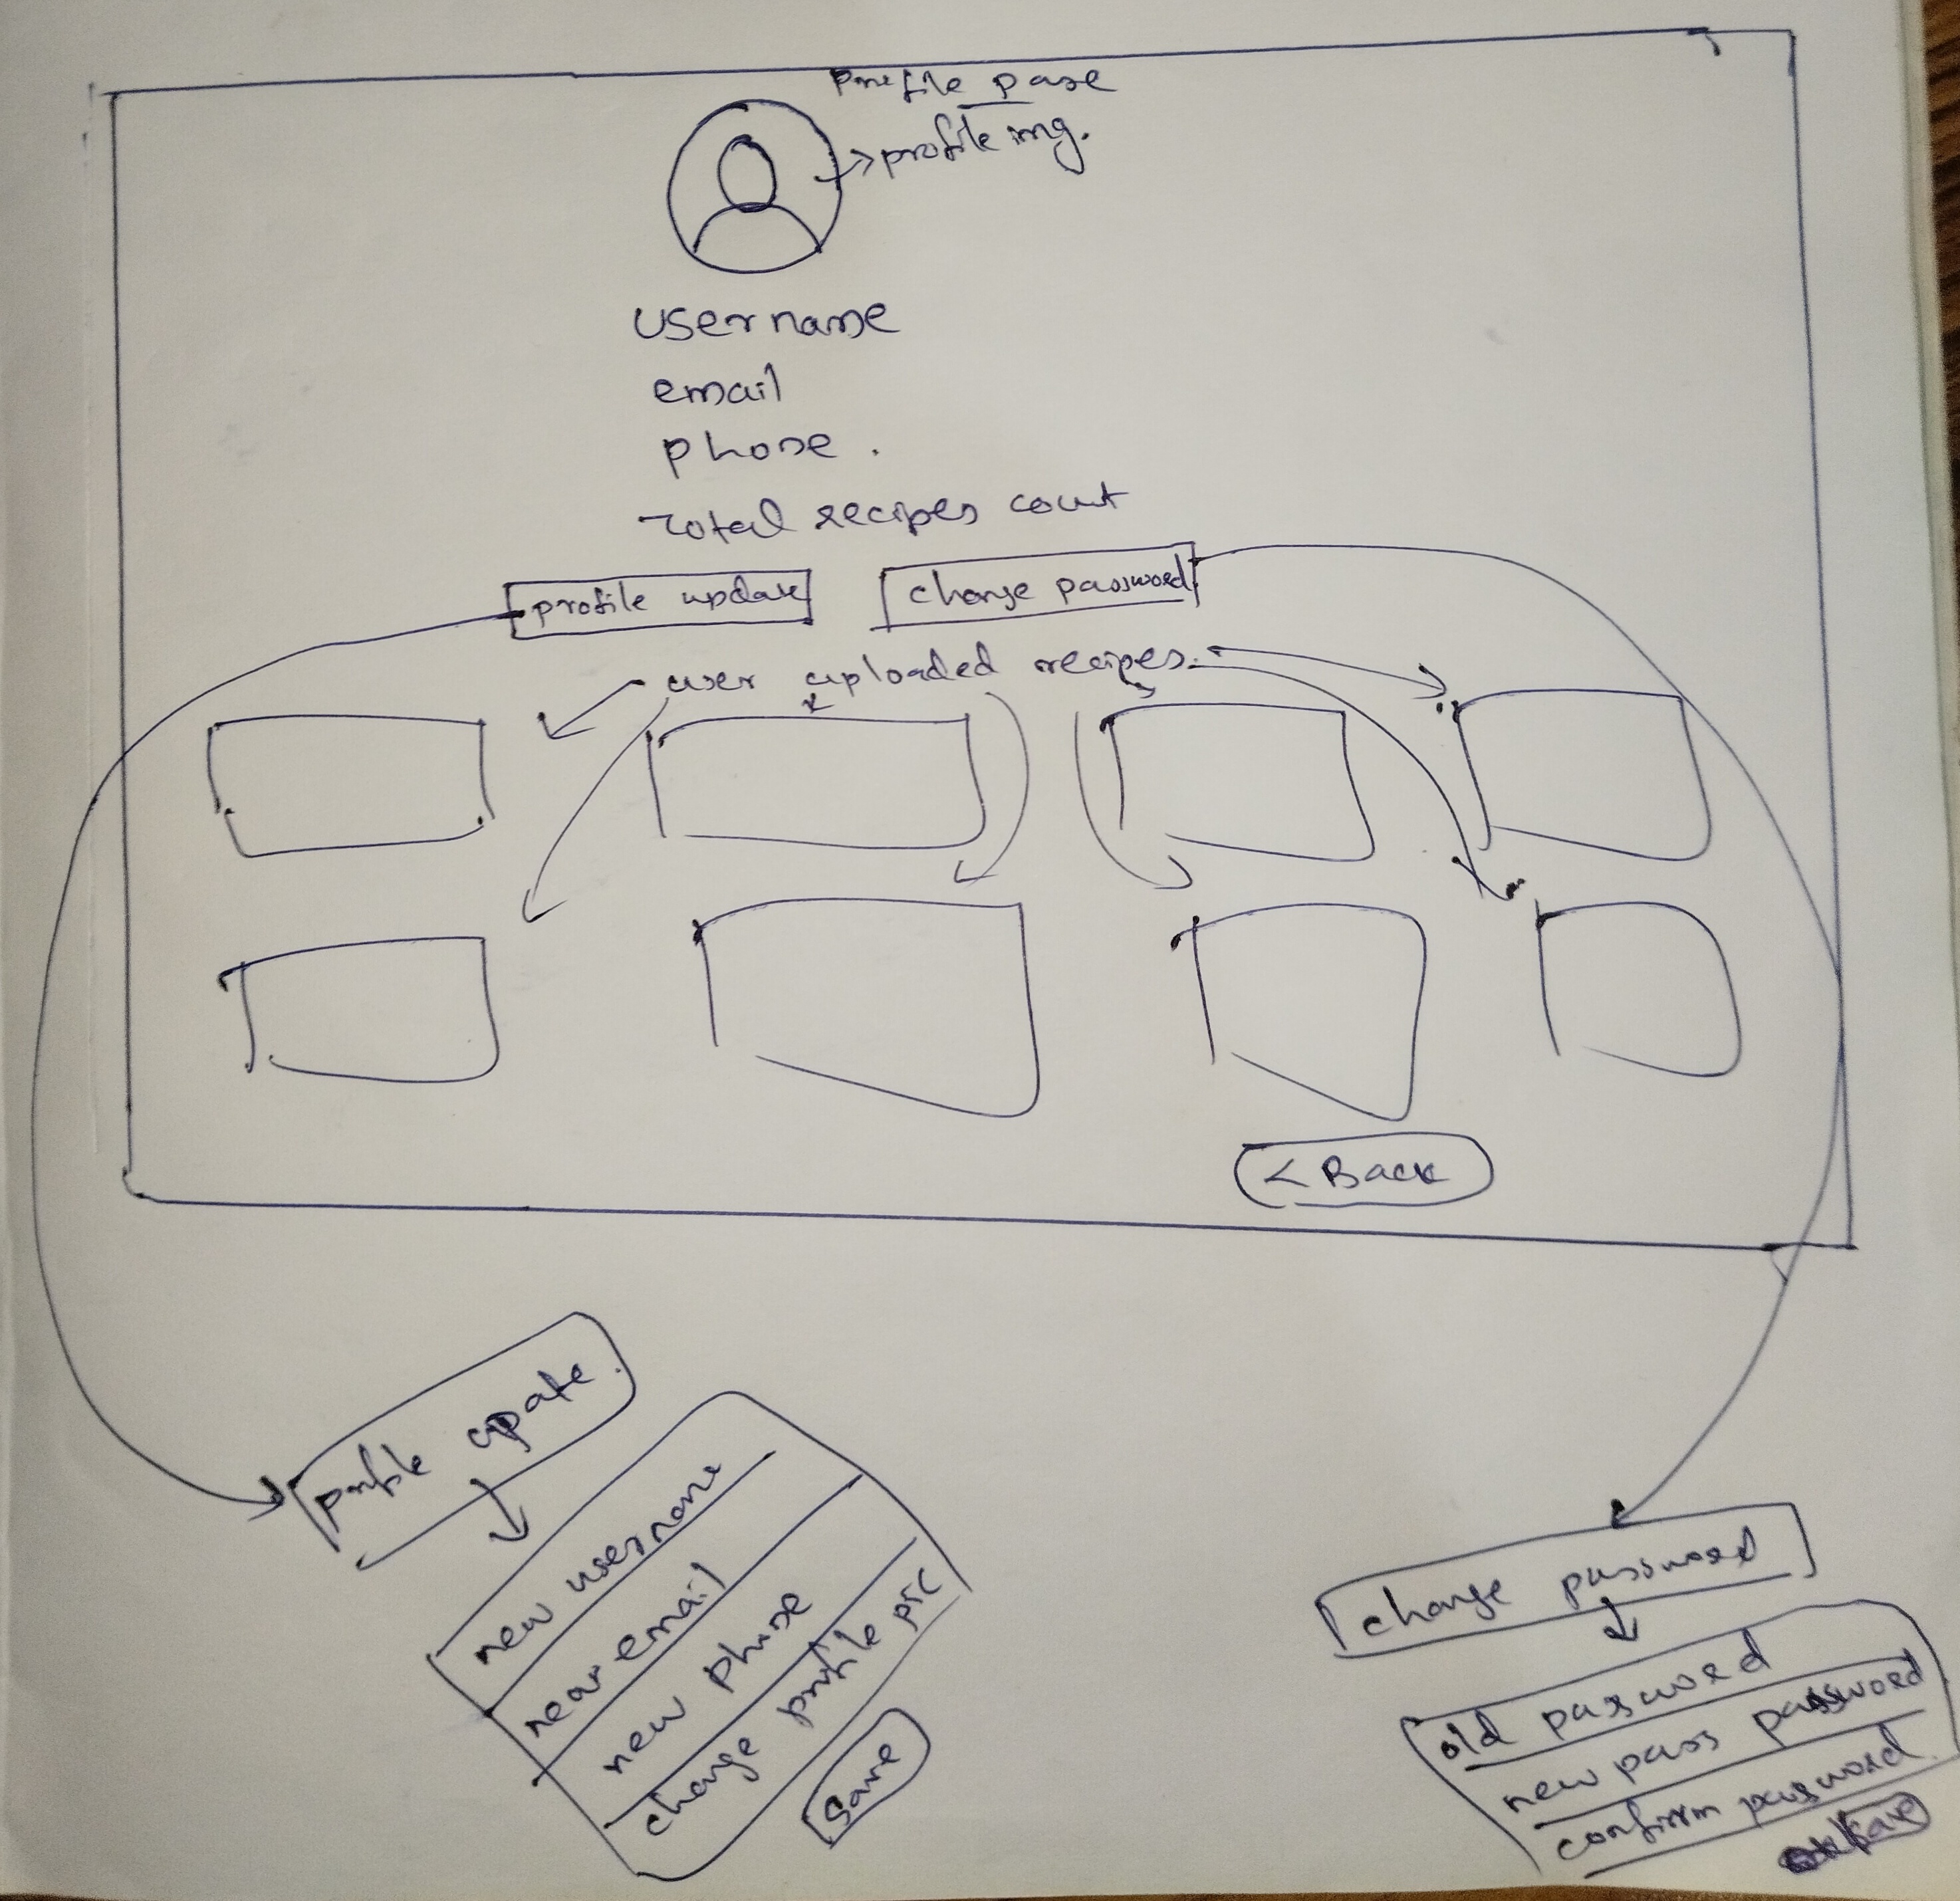 profile page
profile img.
username
email
phone .
Total recipes count
profile update
change password
user uploaded recipes.
< Back
profile upate.
new username
new email
new phone
change profile pic
Save
change password
old password
new pass password
confirm password
Save